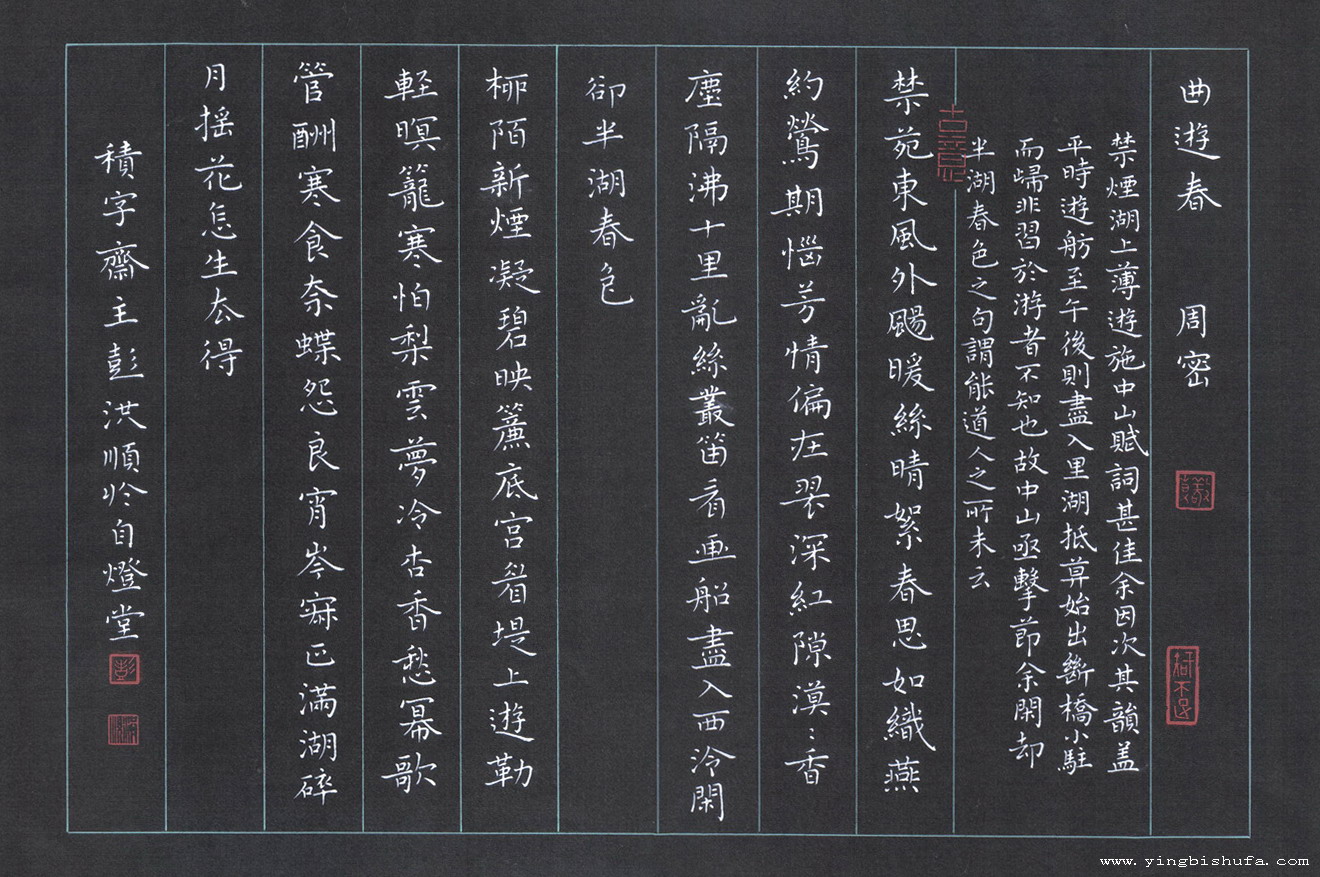 曲遊春 周密
禁煙湖上薄遊施中山賦詞甚佳余因次其韻盖
平時遊舫至午後則盡入里湖抵莫始出斷橋小駐
而歸非習於游者不知也故中山亟擊節余閑却
半湖春色之句謂能道人之所未云
禁苑東風外颺暖絲晴絮春思如織燕
約鶯期惱芳情偏在翠深紅隙漠〻香
塵隔沸十里亂絲叢笛看画船盡入西泠閑
卻半湖春色
柳陌新煙凝碧映簾底宫眉堤上遊勒
軽暝籠寒怕梨雲夢冷杏香愁冪歌
管酬寒食奈蝶怨良宵岑寂正滿湖碎
月揺花怎生厺得
積字齋主彭洪順於自燈堂
彭
www.yingbishufa.com